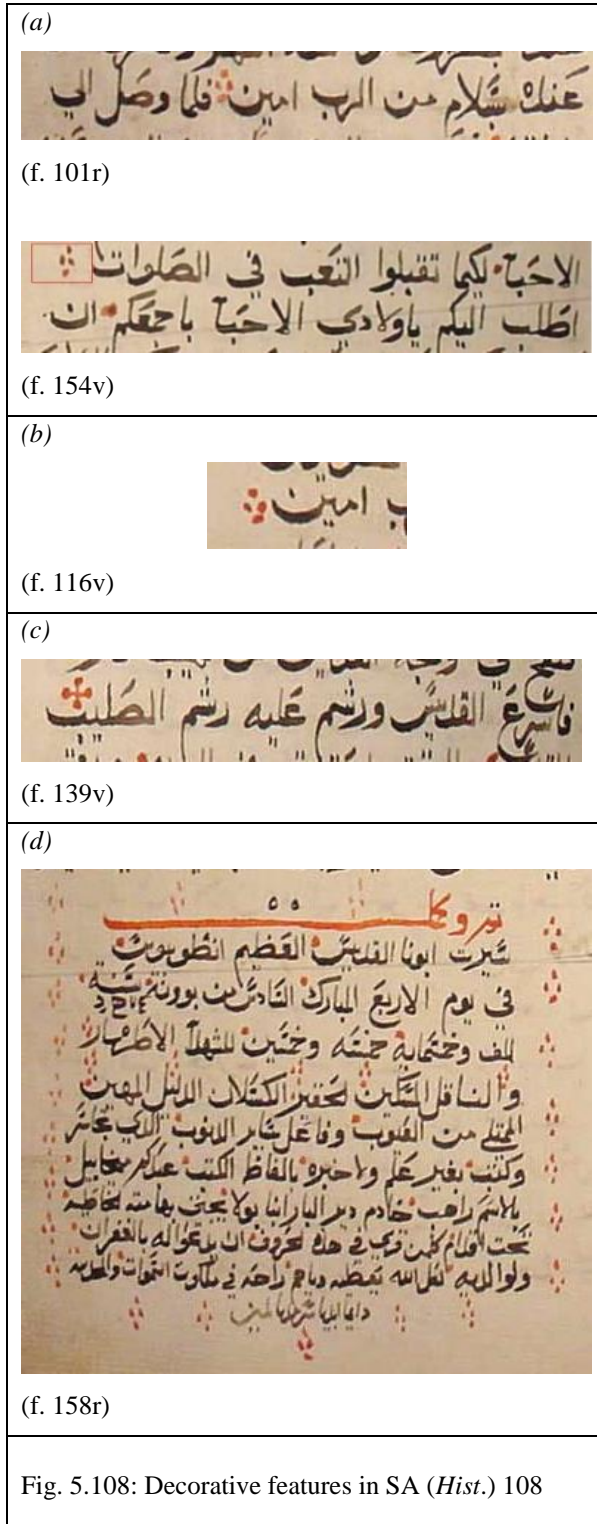 (a)
عنك سَّلام من الرب امين فلما وصل الي
(f. 101r)
الاحبآ لكيما تقبلوا التعب في الصَلوات
اطلب اليكم ياولادي الاحبآ باجمعَكم ان
(f. 154v)
(b)
ب امين
(f. 116v)
(c)
فاسرع القديس ورشم عَليه رشم الصَليب
(f. 139v)
(d)
تم وكمل
سَّيرت ابونا القديسَّ العَظيم انطونيوس
في يوم الاربع المبارك السَّادس من بوونة سَّنة
الف وخمسَّماية خمسَّه وخمسَّين للشهدآ الاطهار
والناقل المسَّكين الحقير الكسَّلان الدليل المهين
الممتلي من العيوب وفاعل سَّاير الدنوب الذي تجاسَّر
وكتب بغير علم ولا خبره بالفاظ الكتب عبدكم ميخاييل
بالاسَّم راهب خادم دير البار انبا بولا
تحت اقدام كلمن قري في هذه الحروف ان يدعوا له بالغفران
ولوالديه لعل الله يعَطيه في ملكوت السَّموات
(f. 158r)
Fig. 5.108: Decorative features in SA (Hist.) 108